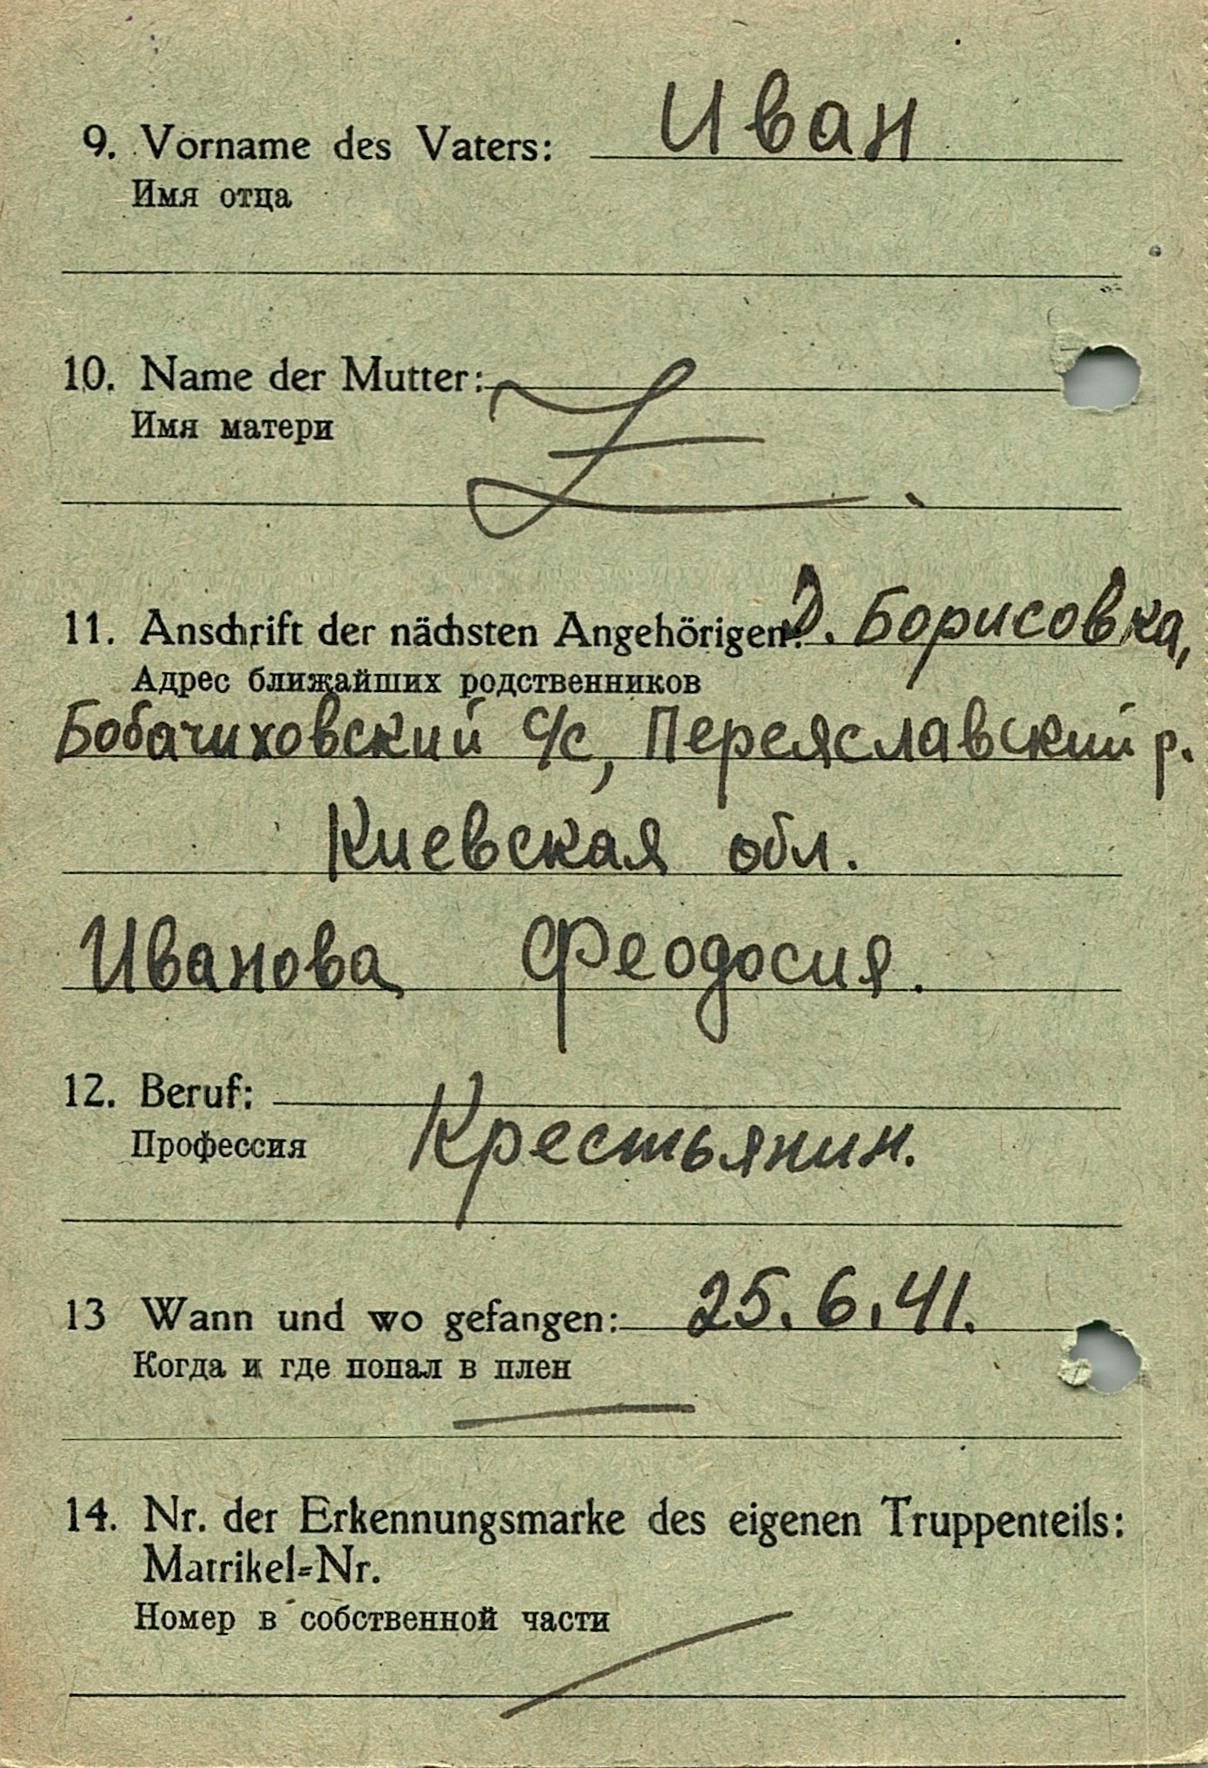 9. Vorname des Vaters: Иван
Имя отца
10. Name der Mutter:
Имя матери
11. Anschrift der nächsten Angehörigen: Д. Борисовка,
Адрес ближайших родственников
Бобачиховский с/с, Переяславский р.
Киевская обл.
Иванова Феодосия.
12. Beruf:
Профессия Крестьянин.
13 Wann und wo gefangen: 25.6.41.
Когда и где попал в плен
14. Nr. der Erkennungsmarke des eigenen Truppenteils:
Matrikel=Nr.
Номер в собственной части